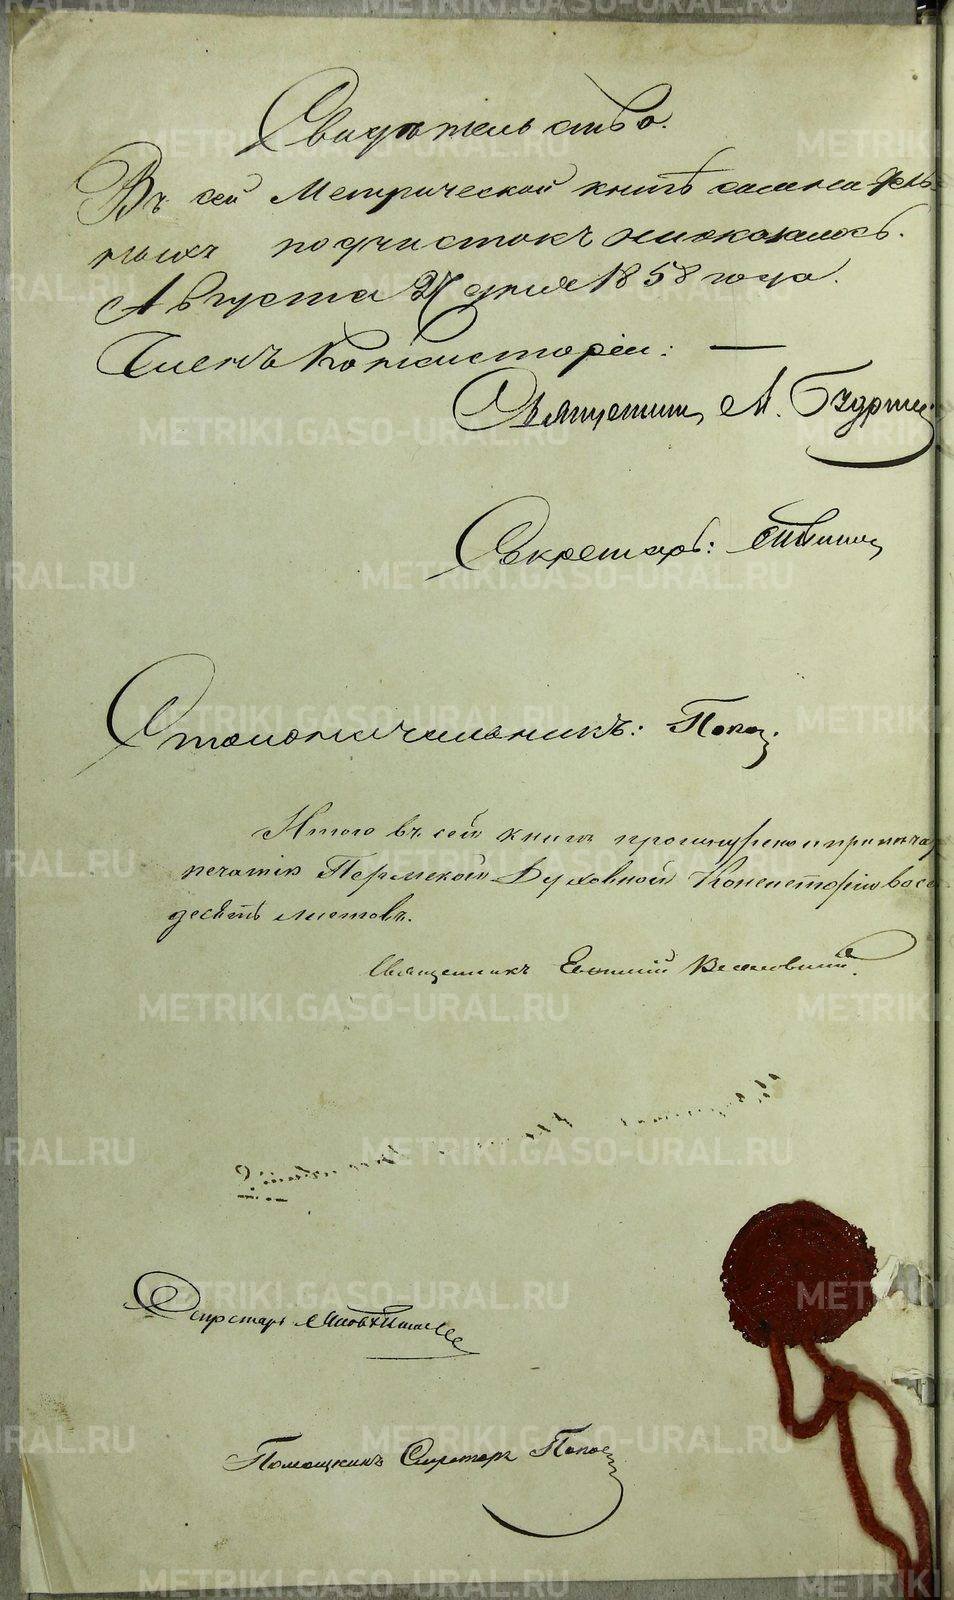 Свидѣтельство.
Въ сей Метрической книгѣ сомнитель-
ныхъ подчистокъ неоказалось.
Августа 21 дня 1858 года.
Членъ Консисторіи: —
Священникъ А.
Секретарь:
Столоначальникъ: Поповъ.
Итого въ сей книгѣ прошнурено и припеча
печатію Пермской Духовной Консисторіи восе
десятъ листовъ.
Священникъ Евгеній
Секретарь
Помощникъ Секретаря Поповъ
METRIKI.GASO-URAL.RU